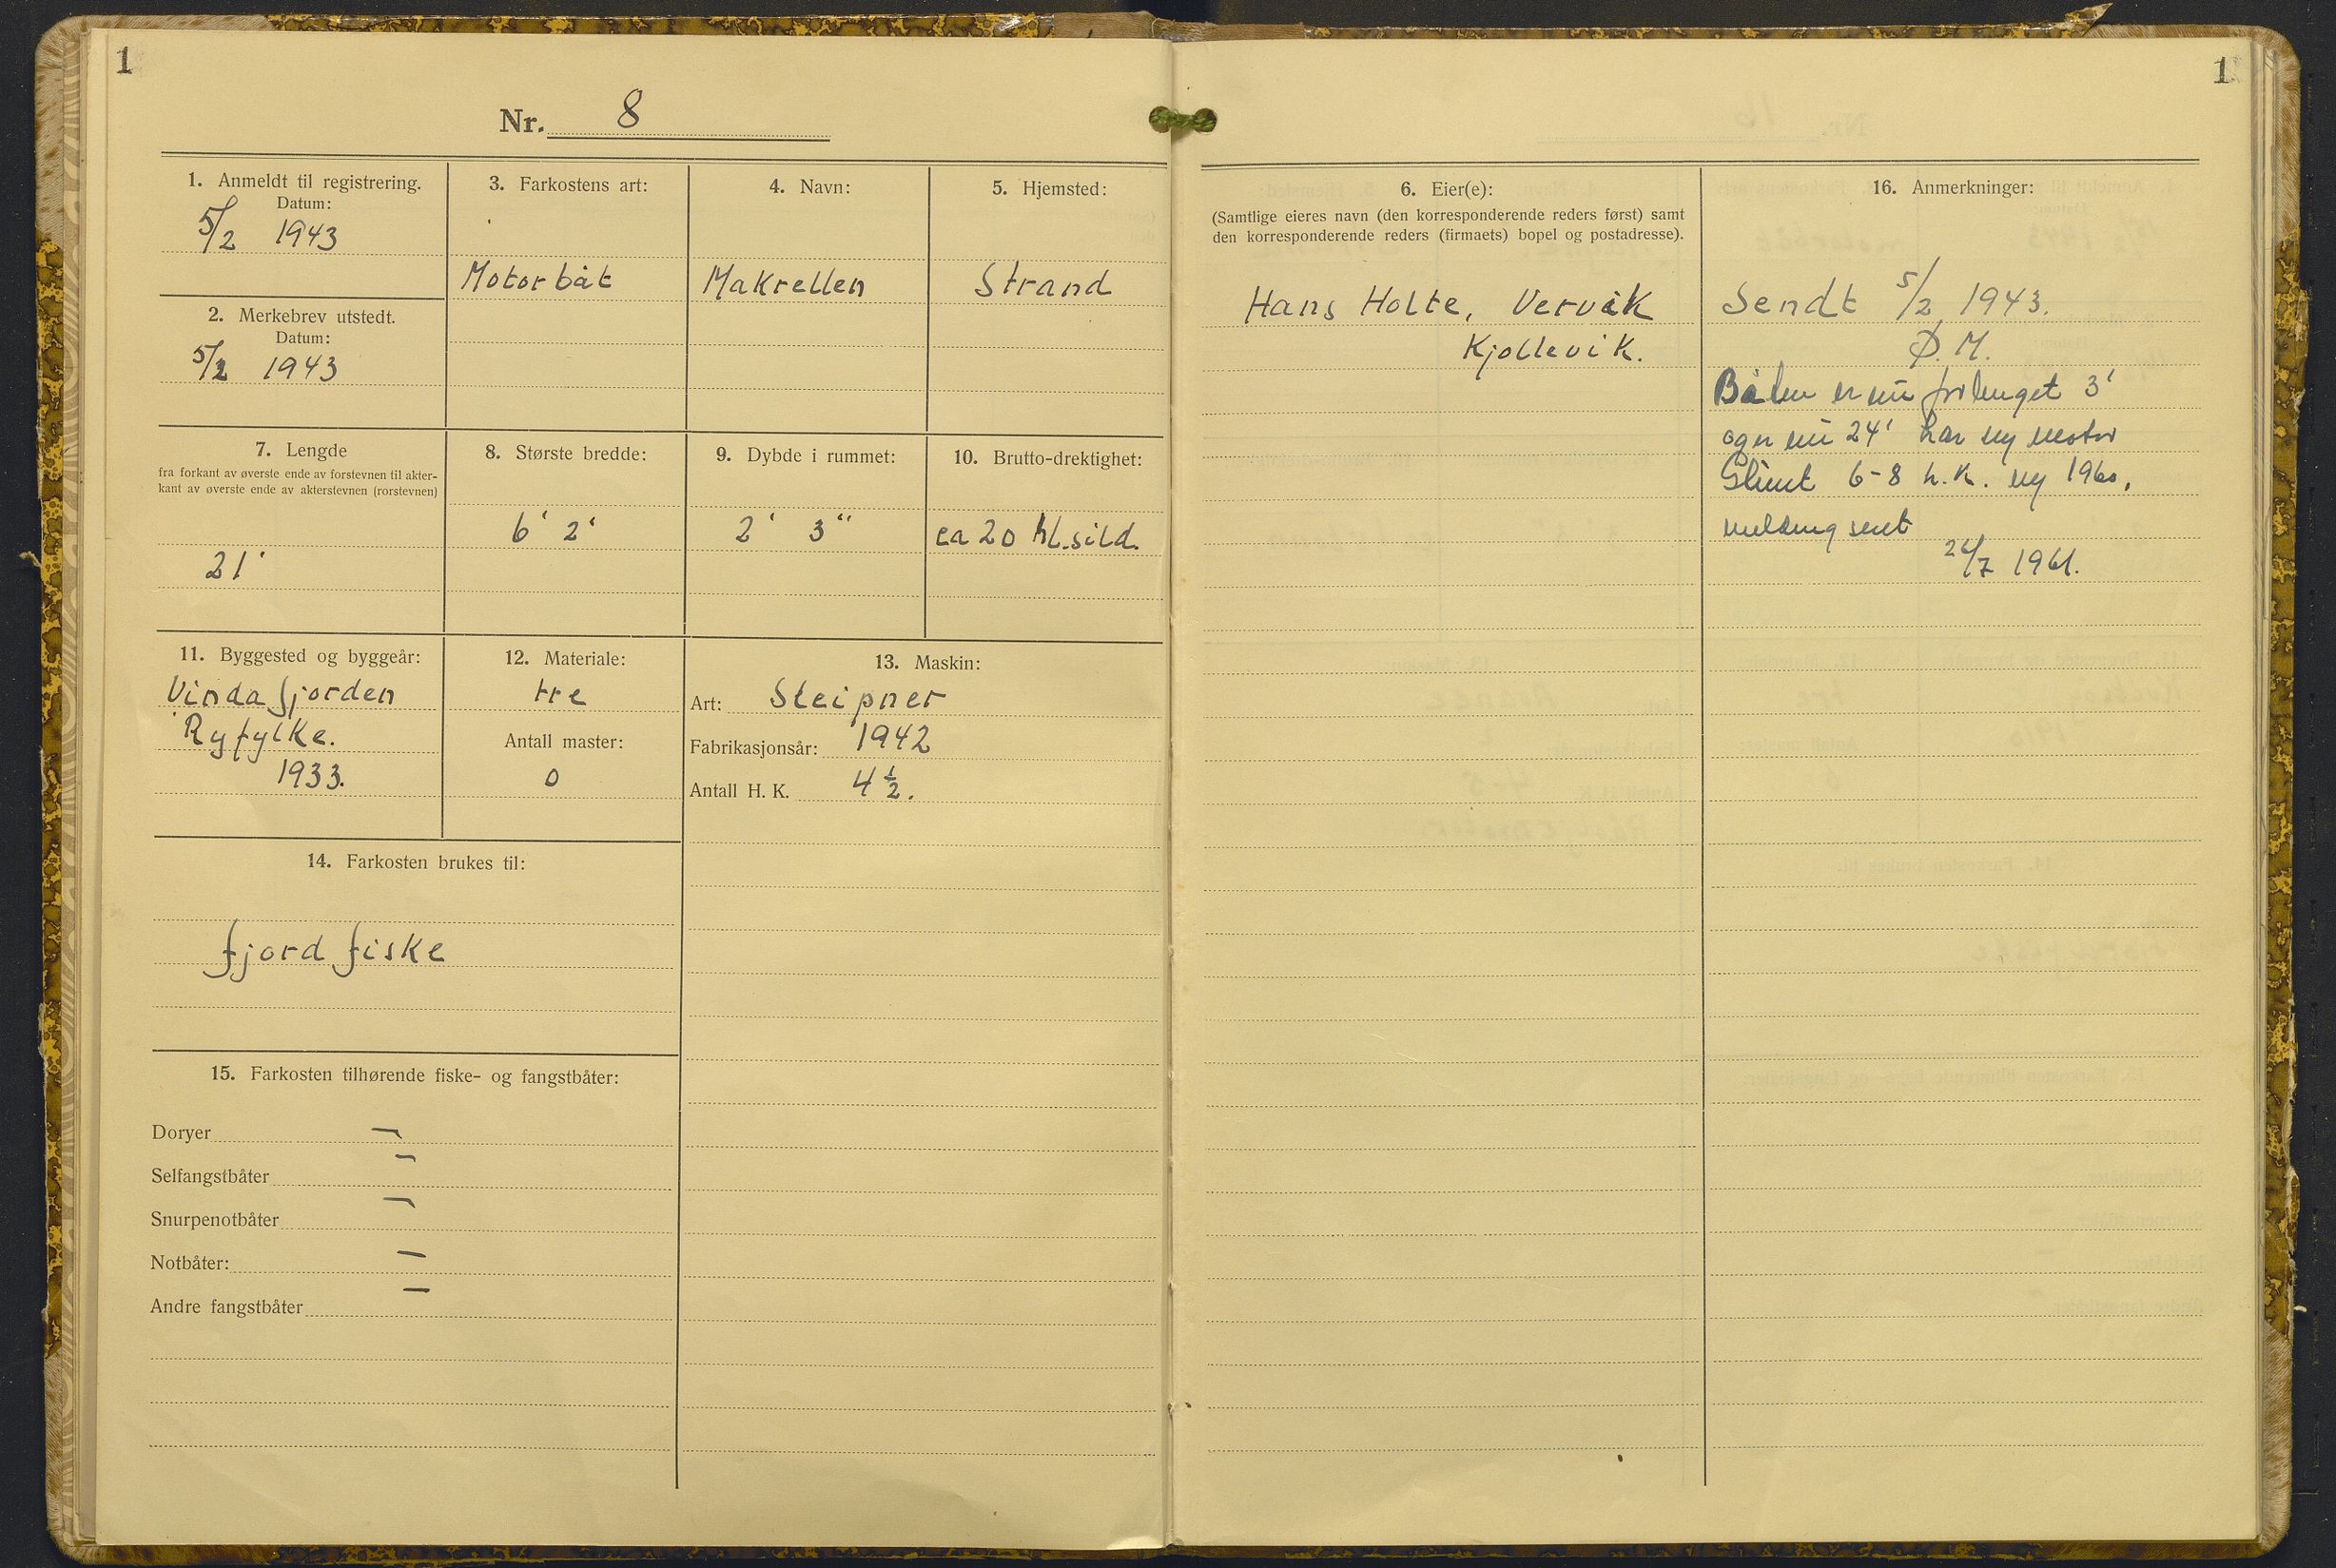 1
Nr. 8
1. Anmeldt til registrering.
Datum:
5/2 1943
2. Merkebrev utstedt.
Datum:
5/2 1943
3. Farkostens art:
Motorbåt
4. Navn:
Makrellen
5. Hjemsted:
Strand
7. Lengde
fra forkant av øverste ende av forstevnen til akter-
kant av øverste ende av akterstevnen (rorstevnen)
21'
8. Største bredde:
6' 2'
9. Dybde i rummet:
2' 3"
10. Brutto-drektighet:
ca 20 hl. sild.
11. Byggested og byggeår:
Vindafjorden
Ryfylke.
1933.
12. Materiale:
tre
Antall master:
0
13. Maskin:
Art: Sleipner
Fabrikasjonsår: 1942
Antall H. K. 4 1/2.
14. Farkosten brukes til:
fjord fiske
15. Farkosten tilhørende fiske- og fangstbåter:
Doryer —
Selfangstbåter —
Snurpenotbåter —
Notbåter: —
Andre fangstbåter —
1
6. Eier(e):
(Samtlige eieres navn (den korresponderende reders først) samt
den korresponderende reders (firmaets) bopel og postadresse).
Hans Holte, Vervik
Kjøllevik.
16. Anmerkninger:
Sendt 5/2 1943.
Ø. M.
Båten er nu forlenget 3'
og er nu 24' har ny motor
Glimt 6-8 h.k. ny 1960.
melding sent
/7 1961.